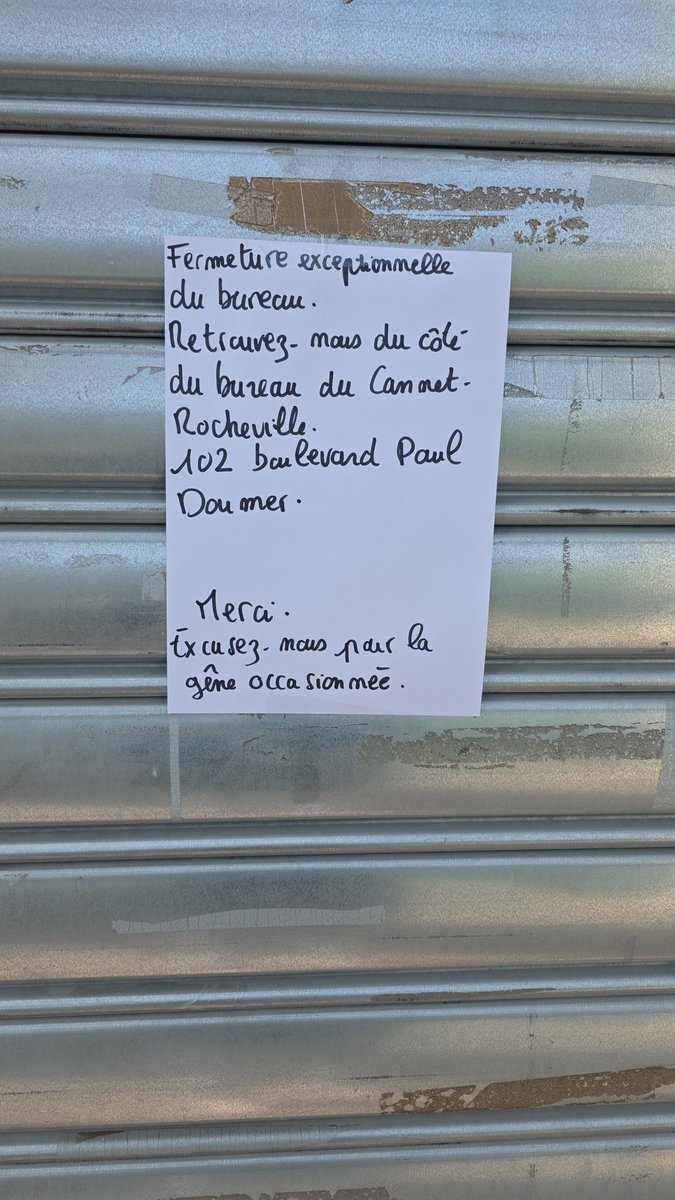 Fermeture exceptionnelle
du bureau.
Retrouvez-nous du côté
du bureau du Cannet-
Rocheville.
102 boulevard Paul
Doumer.
Merci.
Excusez-nous pour la
gêne occasionnée.